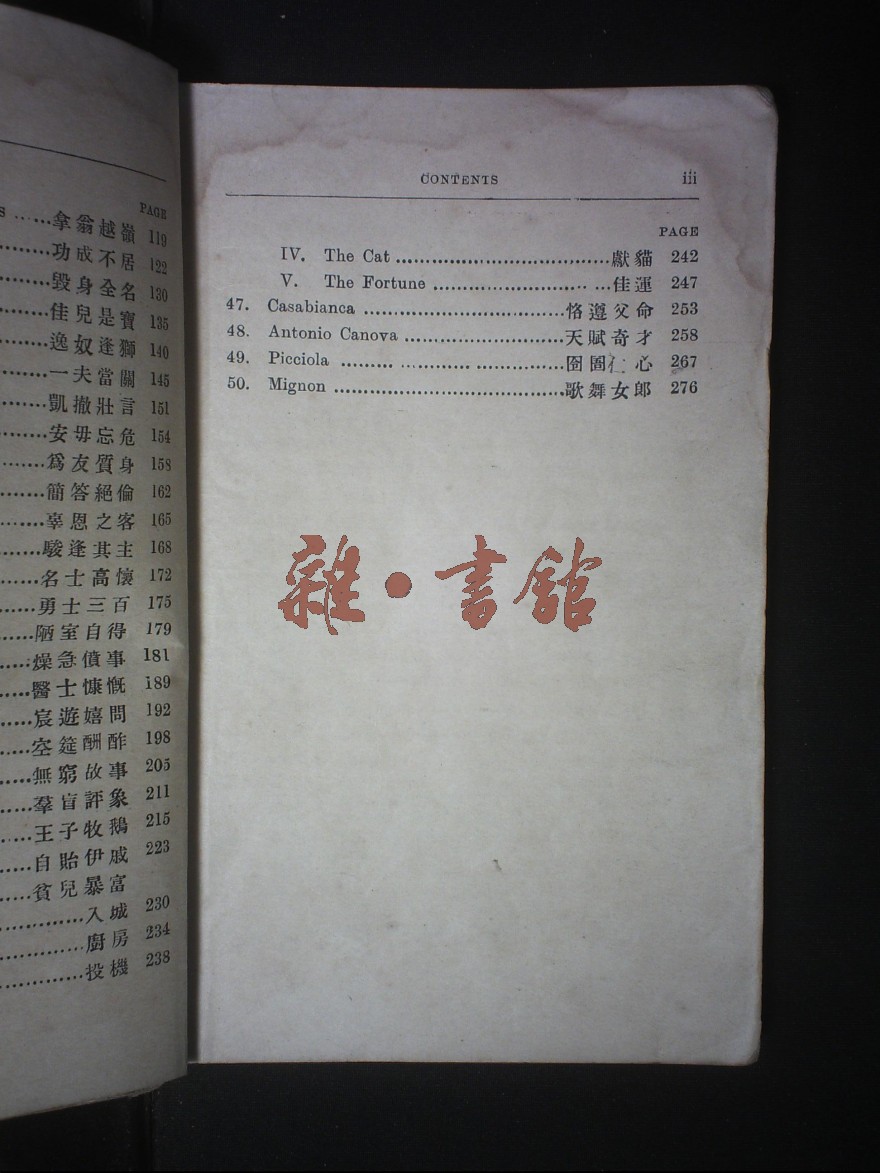 PAGE
s ......拿翁越嶺 119
........功成不居 122
........毀身全名 130
........佳兒是寶 135
........逸奴逢獅 140
........一夫當關 145
........凱撤壯言 151
........安毋忘危 154
........爲友質身 158
........簡答絕倫 162
........辜恩之客 165
........駿逢其主 168
........名士高懷 172
......勇士三百 175
......陋室自得 179
......燥急僨事 181
......醫士慷慨 189
......宸遊嬉問 192
......空筵酬酢 198
......無窮故事 205
......羣盲評象 211
......王子牧鵝 215
......自貽伊戚 223
......貧兒暴富
............入城 230
............廚房 234
............投機 238
CONTENTS iii
PAGE
IV. The Cat ......................................獻貓 242
V. The Fortune ...................... ... ...佳運 247
47. Casabianca ....................................恪遵父命 253
48. Antonio Canova .............................天賦奇才 258
49. Picciola ......... ............ .................囹圄仁心 267
50. Mignon ..........................................歌舞女郎 276
雜·書館